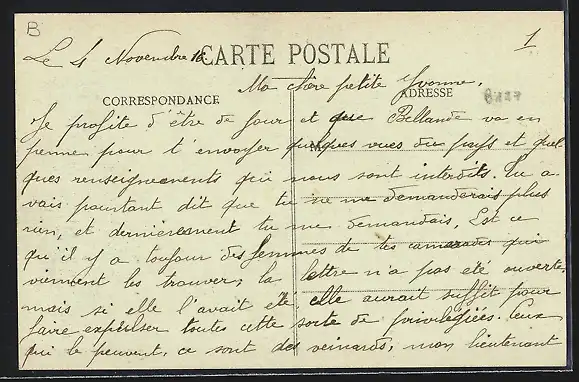 B
1
Le 4 Novembre 16
CARTE POSTALE
Ma chère petite Yvonne,
CORRESPONDANCE
ADRESSE
Je profite d'être de jour et que Bellande va en
perme pour t'envoyer quelques vues du pays et quel
ques renseignements qui nous sont interdits. Tu a-
vais pourtant dit que tu ne me demanderais plus
rien, et dernièrement tu me demandais, Est ce
qu'il y a toujour des femmes de tes camarades qui
viennent les trouver; la lettre n'a pas été ouverte,
mais si elle l'avait été elle aurait suffit pour
faire expulser toutes cette sorte de privilégiées. Ceux
qui le peuvent, ce sont des veinards, mon lieutenant